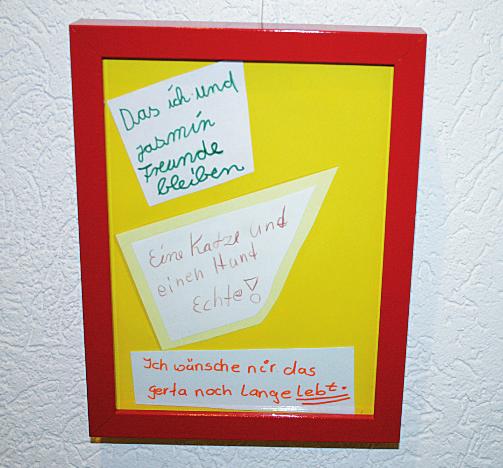 Das ich und
jasmin
Freunde
bleiben
Eine Katze und
einen Hund
Echte!
Ich wünsche mir das
gerta noch Lange lebt.